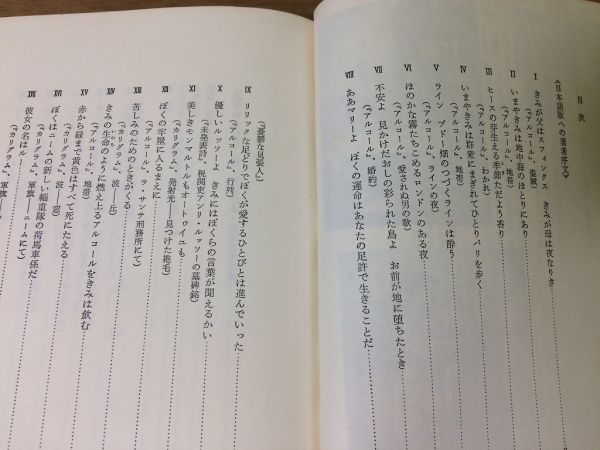 目次
《日本語版への著者序文》
Ⅰ きみが父はスフィンクス きみが母は夜なりき
(『アルコール』、盗賊)
Ⅱ いまやきみは地中海のほとりにあり
(『アルコール』、地帯)
Ⅲ ヒースの芽生える季節ただよう香り
(『アルコール』、わかれ)
Ⅳ いまやきみは群衆にまぎれてひとりパリを歩く
(『アルコール』、地帯)
Ⅴ ライン ブドー畑のつづくラインは酔う
(『アルコール』、ラインの夜)
Ⅵ ほのかな霧たちこめるロンドンのある夜
(『アルコール』、愛されぬ男の歌)
Ⅶ 不安よ 見かけだおしの彩られた鳥よ お前が地に堕ちたとき
(『アルコール』、婚約)
Ⅷ ああマリーよ ぼくの運命はあなたの足許で生きることだ
(『憂鬱な見張人』)
Ⅸ リリックな足どりでぼくが愛するひとびとは進んでいった
(『アルコール』、行列)
Ⅹ 優しいルッソーよ きみにはぼくらの言葉が聞えるかい
(『未発表詩』、税関吏アンリ・ルッソーの墓碑銘)
Ⅺ 美しきモンマルトルもオートゥイユも
(『カリグラム』、発射光―見つけた捲毛)
Ⅻ ぼくの牢屋に入るまえに
(『アルコール』、ラ・サンテ刑務所にて)
XIII 苦しみのためのときがくる
(『カリグラム』、波―丘)
XIV きみの生命のように燃え上るアルコールをきみは飲む
(『アルコール』、地帯)
XV 赤から緑まで黄色はすべて死にたえる
(『カリグラム』、波―窓)
XVI ぼくはニームの新しい輜重隊の荷馬車係だ
(『カリグラム』、軍旗―ニームにて)
XVII 彼女の名はルー